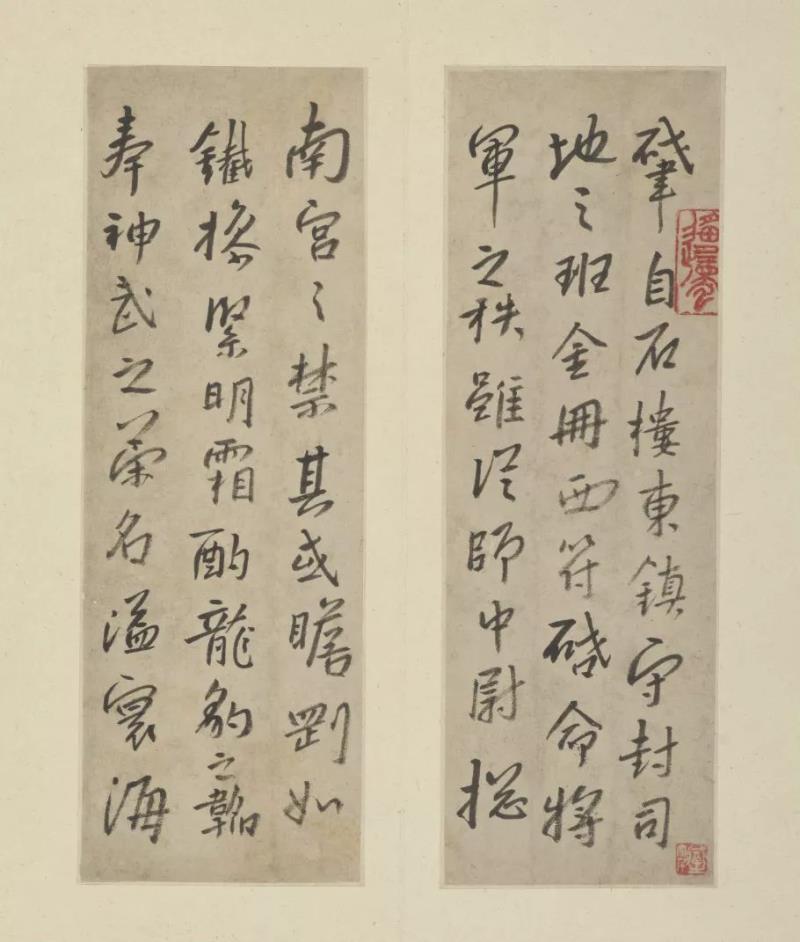 肇自石樓東鎮守封司
地之班金冊西符啓命將
軍之秩雖從師中尉揔
南宮之禁其或瞻剛如
鐵操緊明霜酌龍豹之韜
奉神武之榮名溢寰海